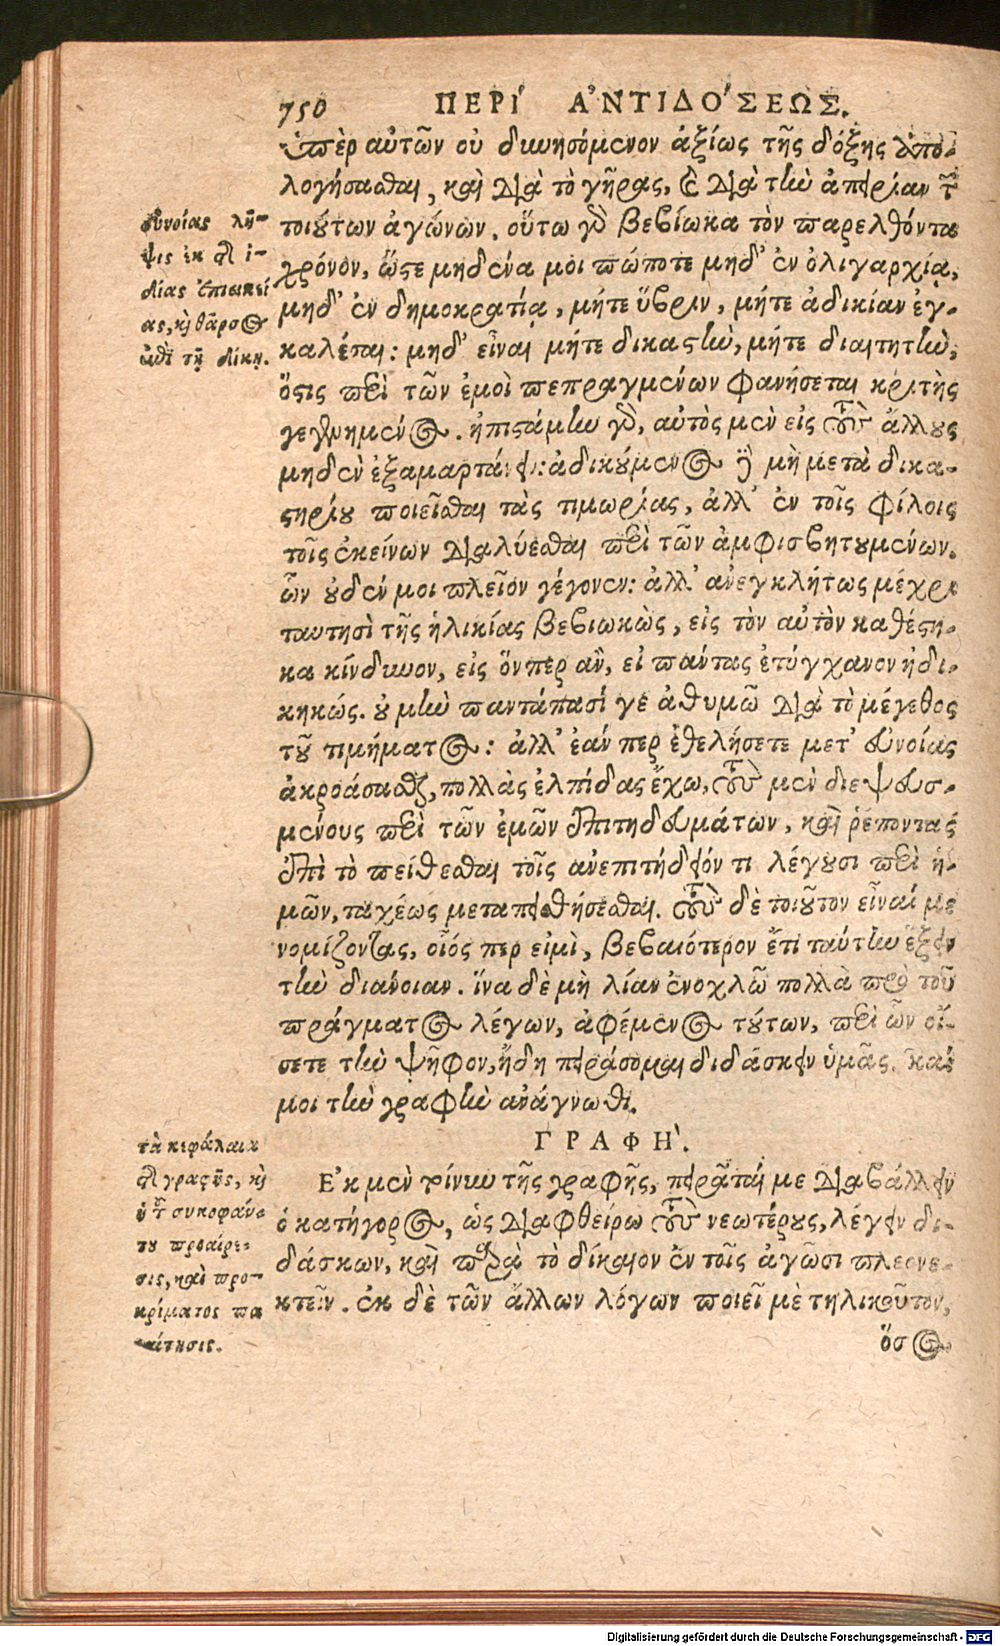 750 ΠΕΡΙ´ Α᾿ΝΤΙΔΟ´ΣΕΩΣ.
ὑπὲρ αὐτῶν οὐ δυνησόμενον ἀξίως τῆς δόξης ἀπο-
λογήσασθαι, καὶ διὰ τὸ γῆρας, καὶ διὰ τὴν ἀπειρίαν τῶν
τοιούτων ἀγώνων. οὕτω γὰρ βεβίωκα τὸν παρελθόντα
χρόνον, ὥστε μηδένα μοι πώποτε μηδ' ἐν ὀλιγαρχίᾳ,
μηδ' ἐν δημοκρατίᾳ, μήτε ὕβριν, μήτε ἀδικίαν ἐγ-
καλέσαι: μηδ' εἶναι μήτε δικαστὴν, μήτε διαιτητὴν,
ὅστις περὶ τῶν ἐμοὶ πεπραγμένων φανήσεται κριτὴς
γεγενημένος. ἠπιστάμην γὰρ, αὐτὸς μὲν εἰς τοὺς ἄλλους
μηδὲν ἐξαμαρτάνειν: ἀδικούμενος δὲ μὴ μετὰ δικα-
στηρίου ποιεῖσθαι τὰς τιμωρίας, ἀλλ' ἐν τοῖς φίλοις
τοῖς ἐκείνων διαλύεσθαι περὶ τῶν ἀμφισβητουμένων.
ὧν οὐδέν μοι πλεῖον γέγονεν: ἀλλ' ἀνεγκλήτως μέχρι
ταυτησὶ τῆς ἡλικίας βεβιωκὼς, εἰς τὸν αὐτὸν καθέστη-
κα κίνδυνον, εἰς ὅνπερ ἂν, εἰ πάντας ἐτύγχανον ἠδι-
κηκώς. οὐ μὴν παντάπασί γε ἀθυμῶ διὰ τὸ μέγεθος
τοῦ τιμήματος: ἀλλ' ἐάν περ ἐθελήσετε μετ' εὐνοίας
ἀκροάσασθαι, πολλὰς ἐλπίδας ἔχω, τοὺς μὲν διεψευσ-
μένους περὶ τῶν ἐμῶν ἐπιτηδευμάτων, καὶ ῥέποντας
ἐπὶ τὸ πείθεσθαι τοῖς ἀνεπιτήδειόν τι λέγουσι περὶ ἡ-
μῶν, ταχέως μεταπεισθήσεσθαι. τοὺς δὲ τοιοῦτον εἶναί με
νομίζοντας, οἷός περ εἰμὶ, βεβαιότερον ἔτι ταύτην ἕξειν
τὴν διάνοιαν. ἵνα δὲ μὴ λίαν ἐνοχλῶ πολλὰ πρὸ τοῦ
πράγματος λέγων, ἀφέμενος τούτων, περὶ ὧν οἴ-
σετε τὴν ψῆφον, ἤδη πειράσομαι διδάσκειν ὑμᾶς. καί
μοι τὴν γραφὴν ἀνάγνωθι.
ΓΡΑΦΗ`.
Ε᾿κ μὲν τοίνυν τῆς γραφῆς, πειρᾶταί με διαβάλλειν
ὁ κατήγορος, ὡς διαφθείρω τοὺς νεωτέρους, λέγειν δι-
δάσκων, καὶ παρὰ τὸ δίκαιον ἐν τοῖς ἀγῶσι πλεονε-
κτεῖν. ἐκ δὲ τῶν ἄλλων λόγων ποιεῖ μὲ τηλικοῦτον,
ὅσος
εὐνοίας λῆ-
ψις ἐκ τῆς ἰ-
δίας ἐπιεικεί
ας, καὶ θάρσος
ἐπὶ τῇ δίκῃ.
τὰ κεφάλαια
τῆς γραφῆς, καὶ
ἡ τοῦ συκοφάν-
του προαίρε-
σις, καὶ προ-
κρίματος πα
ραίτησις.
Digitalisierung gefördert durch die Deutsche Forschungsgemeinschaft - DFG